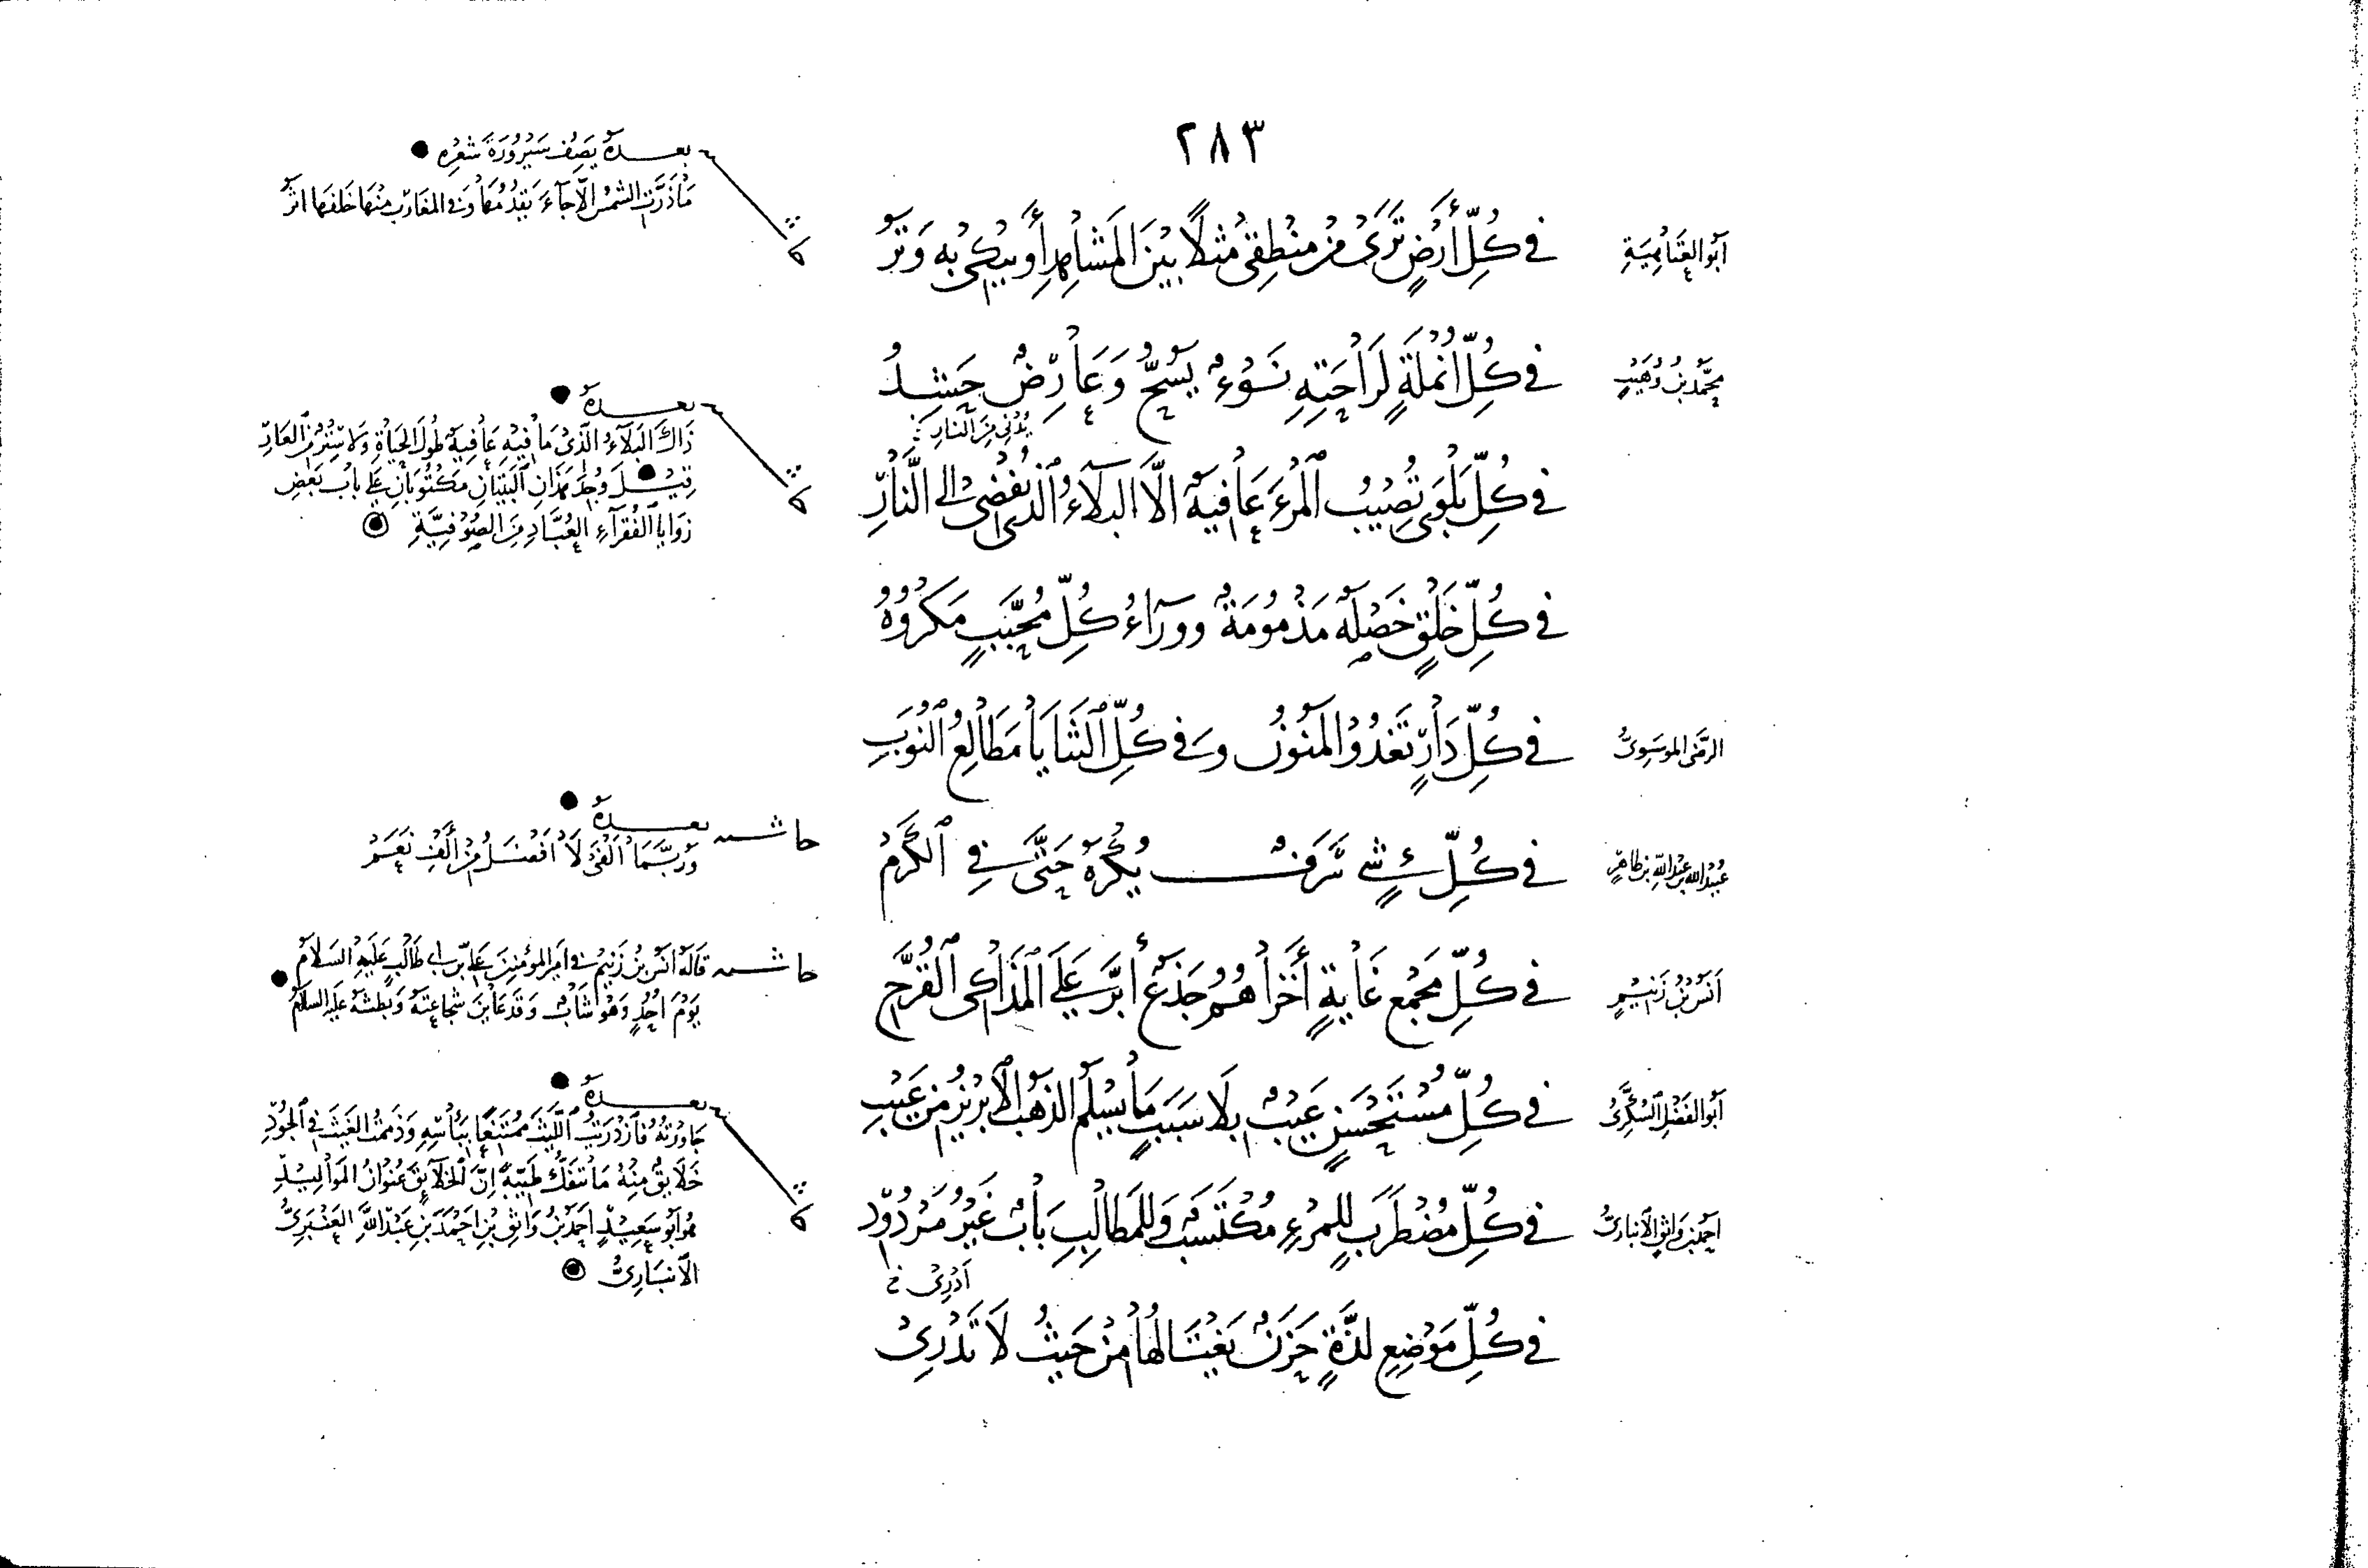 ٢٨٣
أبو العتاهية
في كُلِّ أَرْضٍ تَرَى مِنْ مَنْطِقِي مَثَلًا بَيْنَ المَشَاهِدِ أَوْ يُبْكَى بِهِ وَتَرُ
بعده يَصِفُ سَيْرُورَةَ شِعْرِهِ
مَا ذَرَّتِ الشَّمْسُ إلَّا جَاءَ يَقْدُمُهَا وَفي المَغَارِبِ مِنْهَا خَلْفَهَا أَثَرُ
مُحَمَّدُ بنُ وُهَيْبٍ
في كُلِّ أُنْمُلَةٍ لِرَاحَتِهِ نَوْءٌ يَسُحُّ وَعَارِضٌ حَشِدُ
يُدْنِي مِنَ النَّارِ
في كُلِّ بَلْوَى تُصِيبُ المَرْءَ عَافِيَةٌ إلَّا البَلَاءُ الَّذِي يُفْضِي إلى النَّارِ
بعده
ذَاكَ البَلَاءُ الَّذِي مَا فِيهِ عَافِيَةٌ طُولَ الحَيَاةِ وَلَا سِتْرٌ مِنَ العَارِ
قِيلَ وُجِدَ هَذَانِ البَيْتَانِ مَكْتُوبَانِ عَلَى بَابِ بَعْضِ
زَوَايَا الفُقَرَاءِ العُبَّادِ مِنَ الصُّوفِيَّةِ
في كُلِّ خَلْقٍ خَصْلَةٌ مَذْمُومَةٌ وَوَرَاءُ كُلِّ مُحَبَّبٍ مَكْرُوهُ
الرضى الموسوىُّ
في كُلِّ دَارٍ تَغْدُو المَنُونُ وَفي كُلِّ الثَّنَايَا مَطَالِعُ النُّوَبِ
عُبَيْدُ الله بنُ عَبْدِ اللهِ بنِ طَاهِرٍ
في كُلِّ شَيْءٍ سَرَفٌ يُكْرَهُ حَتَّى في الكَرَمْ
حاشية بعده
وَرُبَّمَا أَلْفَى لَا أَفْضَلُ مِنْ أَلْفِ نَعَمْ
أَنَسُ بنُ زُنَيْمٍ
في كُلِّ مَجْمَعِ غَايَةٍ أَخْزَاهُمُ جَذَعٌ أَبَرَّ عَلَى المَذَاكِي القُرَّحِ
حاشية قَالَهُ أَنَسُ بنُ زُنَيْمٍ في أَمِيرِ المُؤْمِنِينَ عَلِيِّ بنِ أبي طَالِبٍ عَلَيْهِ السَّلَامُ
يَوْمَ أُحُدٍ وَهُوَ شَابٌّ وَقَدْ عَايَنَ شَجَاعَتَهُ وَبَطْشَهُ عليه السلام
أبو الفَضْلِ السُّكَّرِيُّ
في كُلِّ مُسْتَحْسَنٍ عَيْبٌ بِلَا سَبَبٍ مَا يَسْلَمُ الذَّهَبُ الإبْرِيزُ مِنْ عَيْبِ
أحمد بن واثق الأنباريُّ
في كُلِّ مُضْطَرَبٍ لِلمَرْءِ مُكْتَسَبٌ وَلِلمَطَالِبِ بَابٌ غَيْرُ مَرْدُودِ
بعده
جَاوَرْتُهُ فَازْدَرَيْتُ اللَّيْثَ مُمْتَنِعًا بِبَأْسِهِ وَذَمَمْتُ الغَيْثَ في الجُودِ
خَلَائِقٌ مِنْهُ مَا تَنْفَكُّ طَيِّبَةً إنَّ الخَلَائِقَ عُنْوَانُ المَوَالِيدِ
هُوَ أَبُو سَعِيدٍ أَحْمَدُ بنُ وَاثِقِ بنِ أَحْمَدَ بنِ عَبْدِ اللَّهِ العَنْبَرِيُّ
الأَنْبَارِيُّ
أَدْرِي خ
في كُلِّ مَوْضِعِ لَذَّةٍ حَزَنٌ يَغْتَالُهَا مِنْ حَيْثُ لَا تَدْرِي